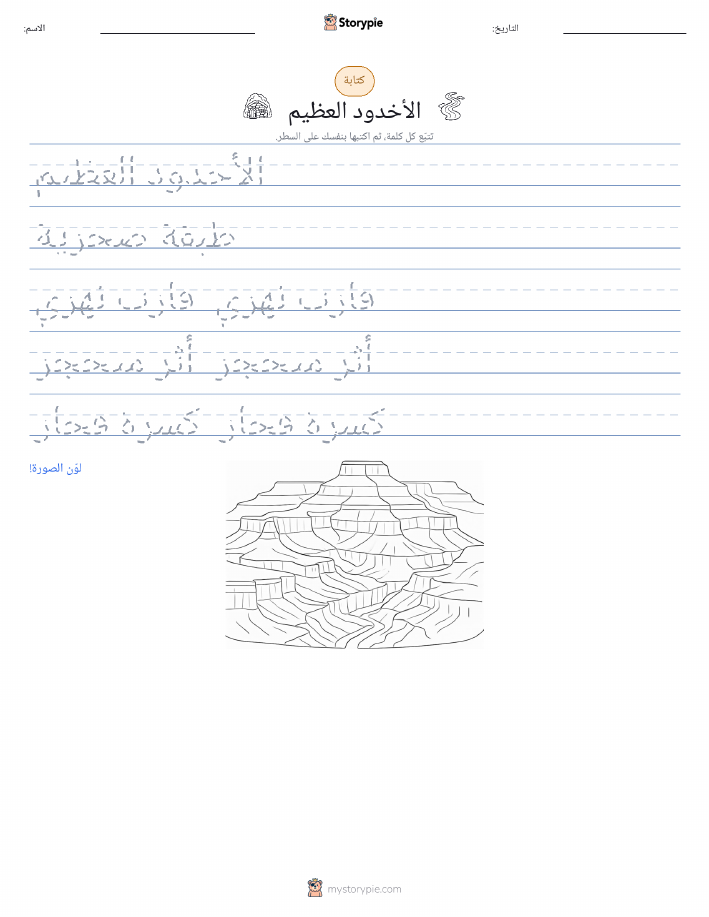 Storypie
الاسم:
التاريخ:
كتابة
الأخدود العظيم
تتبّع كل كلمة، ثم اكتبها بنفسك على السطر.
الأخدود العظيم
طبقة صخرية
قارب نهري قارب نهري
أثر متحجر أثر متحجر
لوّن الصورة!
mystorypie.com